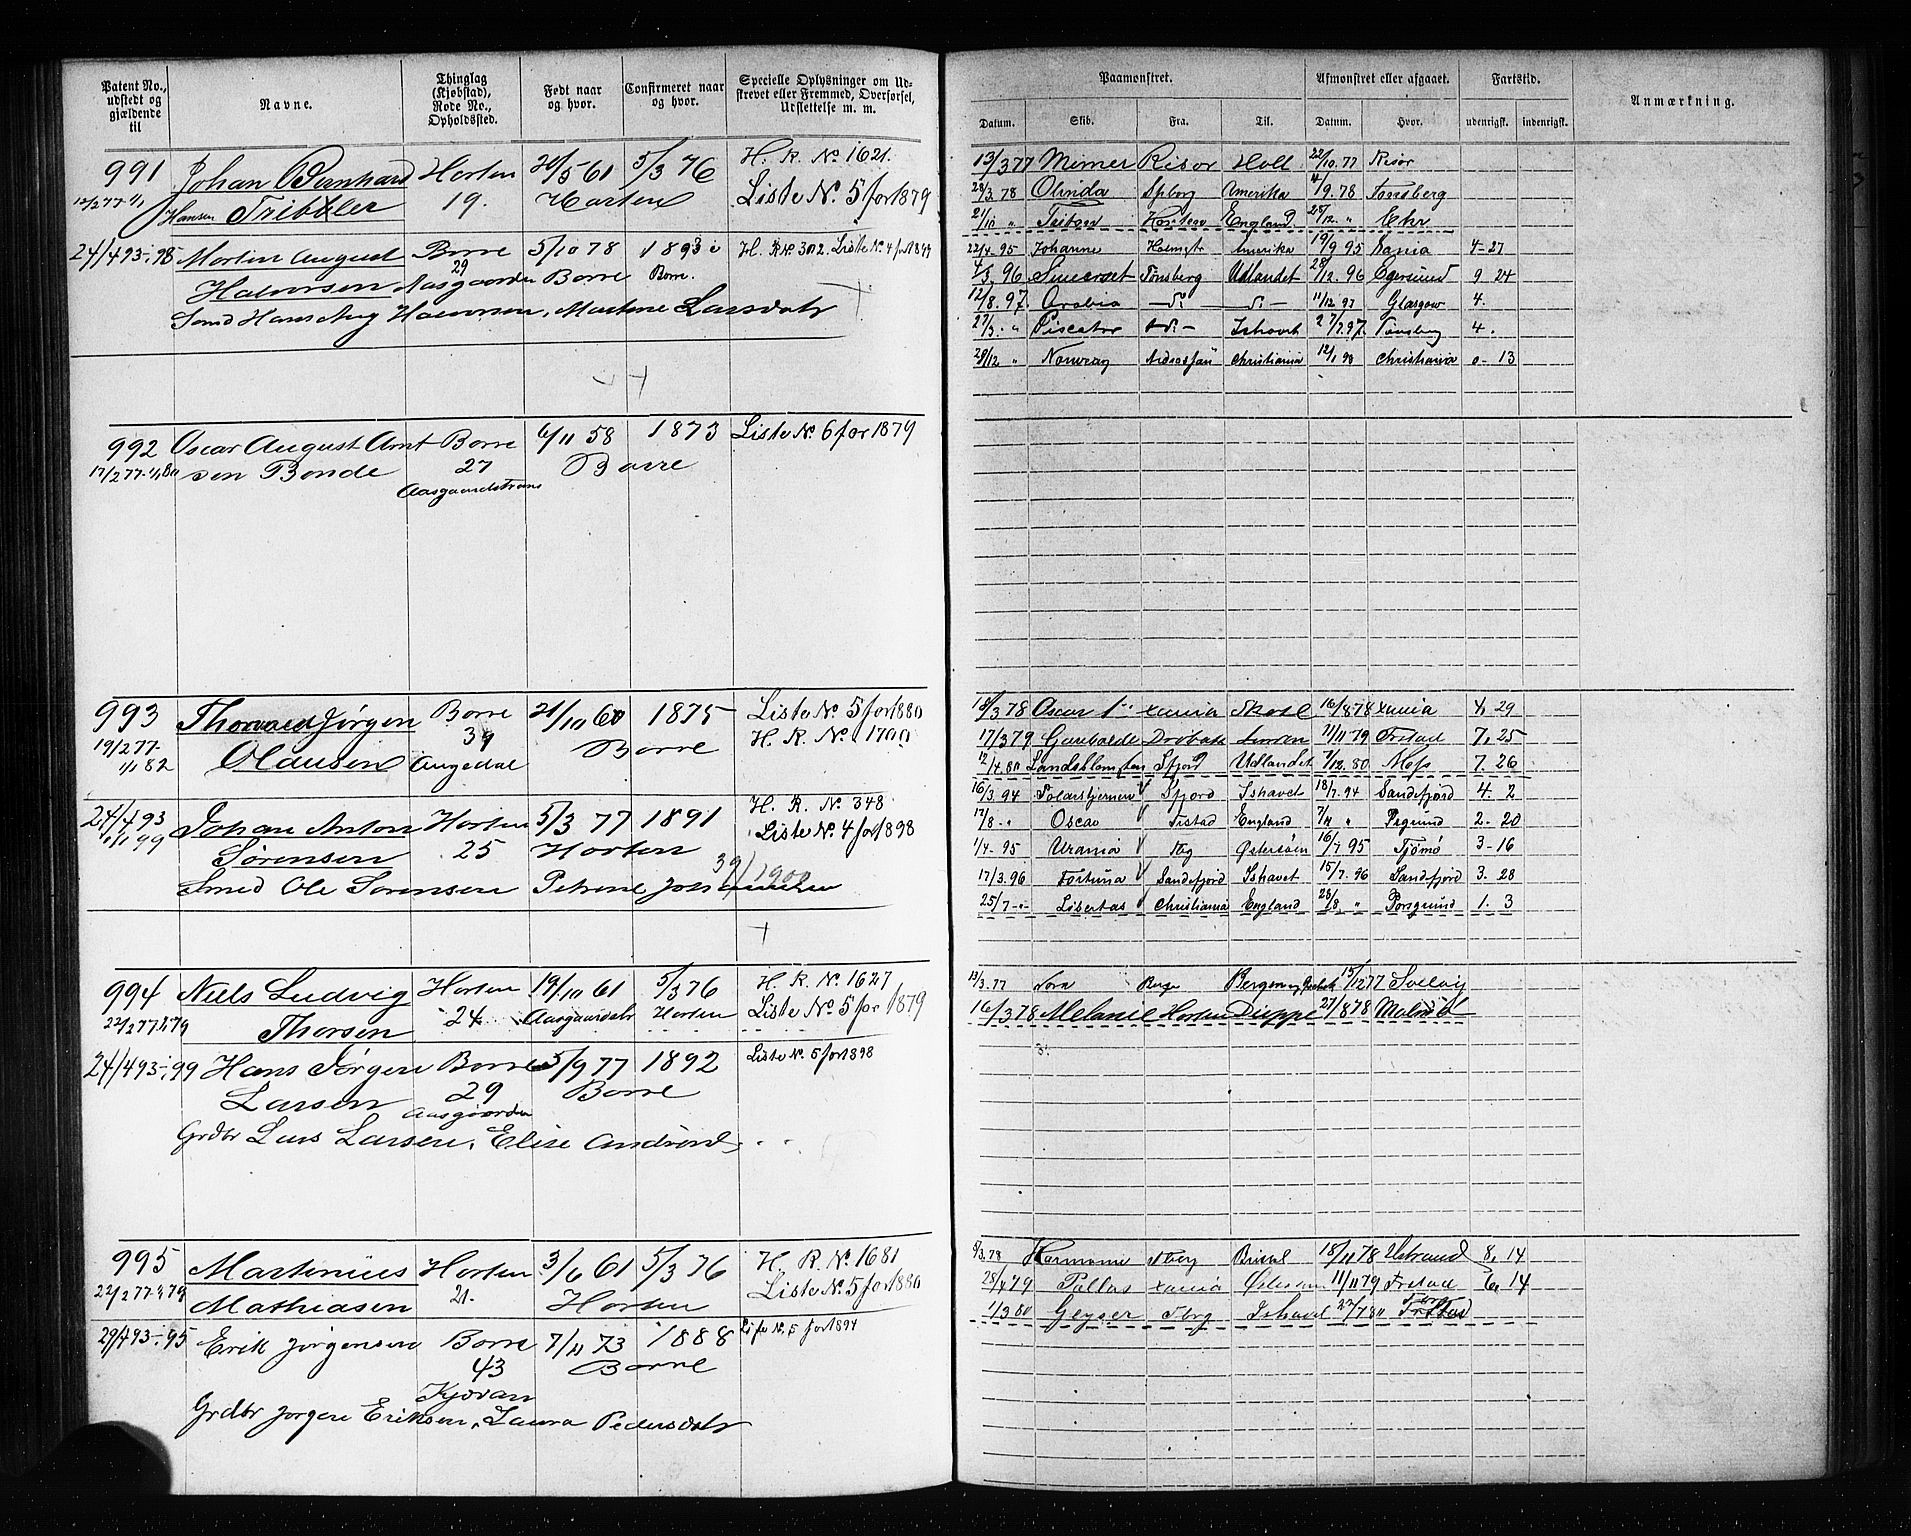 Patent No., udstedt og gjældende til
Navne.
Thinglag (Kjøbstad), Rode No., Opholdssted.
Født naar og hvor.
Confirmeret naar og hvor.
Specielle Oplysninger om Udskrevet eller Fremmed, Overførsel, Udslettelse m. m.
Paamønstret.
Afmønstret eller afgaaet.
Fartstid.
Anmærkning.
Datum. Skib. Fra. Til. Datum. Hvor. udenrigsk. indenrigsk.
991 Johan Bernhard Horten 20/5 61 5/3 76 H. R. No 1621.
Hansen Tribler 19. Horten Liste No. 5 for 1879
24/4 93-98 Martin August Borre 5/10 78 1893 H. R. No. 302. Liste No. 4 for 1899
Halvorsen 29 Aasgaarden Borre Borre.
Smed Hans Aug Halvorsen, Martine Larsdatr
992 Oscar August Arnt Borre 6/11 58 1873 Liste No. 6 for 1879
sen Bonde 27 Borre
Aasgaardstrand
993 Thomas Jørgen Borre 21/10 60 1875 Liste No. 5 for 1880
19/2 77- 1/1 82 Olausen 39 Borre H. R. No. 1700
Augedal
24/4 93 1/1 99 Johan Anton Horten 5/3 77 1891 H. R. No 348
Sørensen 25 Horten Liste No. 4 for 1898
Smed Ole Sørensen Petrine
994 Niels Ludvig Horten 19/10 61 5/3 76 H. R. No. 1627
22/2 77 Thorsen 24 Horten Liste No. 5 for 1879
24/4 93-99 Hans Jørgen Borre 5/9 77 1892 Liste No. 5 for 1898
Larsen 29 Borre
Aasgaarden
Grdbr Lars Larsen, Elise
995 Martinius Horten 3/6 61 5/3 76 H. R. No. 1681
22/2 77 79 Mathiasen 21. Horten Liste No. 5 for 1880
29/4 93-95 Erik Jørgensen Borre 7/11 73 1888 Liste No. 5 for 1894
43 Borre
Grdbr Jørgen Eriksen, Laura Pedersdatr
13/3 77 Mimer Risør Holl 22/10 77 Risør
28/3 78 Olinda Amerika 4/9. 78 Tønsberg
21/10 " England 28/12 "
22/4 95 Johanne Amerika 19/9 95 4-27
4/3 96 Tønsberg Udlandet 28/12 96 Egersund 9 24
12/8. 97. Arabia 11/12 97 Glasgow 4.
Piscator Ishavet 27/7 97. Tønsberg 4.
28/12 " Norveg Christiania 12/1 98 Christiania 0-13
13/3 78 Oscar 1 xania 16/8 78 xania 4 29
17/3 79 Garibalde Drøbak 11/11 79 Frstad 7. 25
12/4. 80 Sfjord Udlandet 7/12. 80 Moss 7. 26
16/3 94 Polarstjernen Sfjord Ishavet 18/7. 94 Sandefjord 4. 2
17/8 - " Oscar Frstad England 7/11 " Pegrund 2- 20
1/4- 95 Urania Tbg Østersøen 16/7 95 Tjømø 3-16
17/3. 96 Fortuna Sandefjord Ishavet 15/7. 96 Sandefjord 3. 28
25/7 - " Libertas Christiania England 28/8 " Porsgrund 1. 3
13/3. 77 15/12 77 Svelvig
16/3 78 Melanie Horten Dieppe 27/8 78
8/3. 78 Tberg 18/11 78 8. 14
28/4 79 Pallas xania 11/11 79 Frstad 6, 14
1/3 80 Geyser Tbrg Ishavet 22/7 80